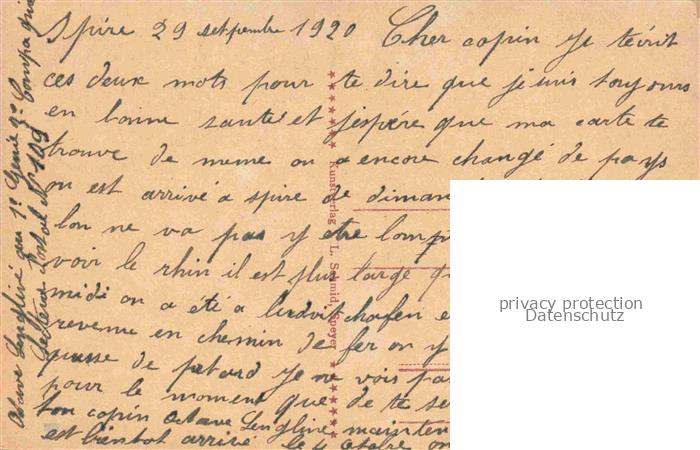 Spire 29 setpembre 1920 Cher copin Je técrit
ces deux mots pour te dire que je suis toujours
en bonne santé et j'espére que ma carte te
trouve de meme on a encore changé de pays
on est arrivé a spire de diman
lon ne va pas y etre lomp
voir le rhin il est plus large
midi on a été a ludvitchafen e
revenue en chemin de fer on y
pusse de petard Je ne vois pas
pour le moment que de te se
ton copin Octave Lenglive mainten
est bientot arrivé le 4 on
Octave Lenglivé au 1e Genie 2e Compagnie
Secteur Postal No 109
Kunstverlag L. Schmid, Speyer
privacy protection
Datenschutz